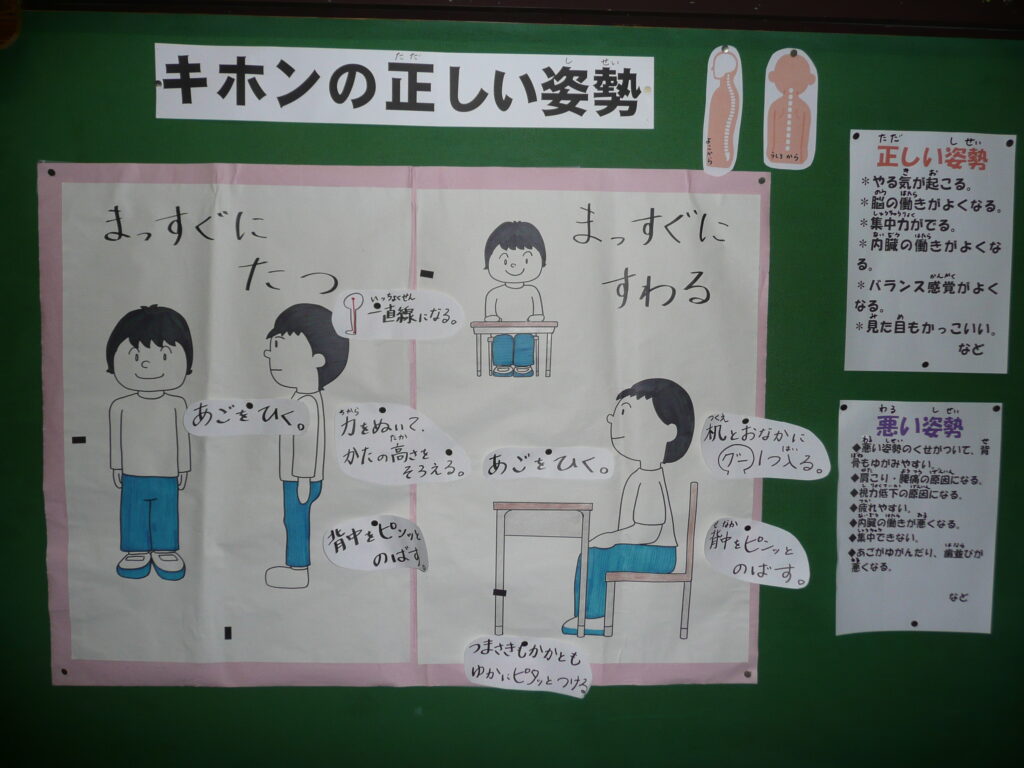 キホンの正しい姿勢
よこから
うしろから
まっすぐに
たつ
一直線になる。
あごをひく。
力をぬいて、
かたの高さを
そろえる。
背中をピンッと
のばす。
まっすぐに
すわる
あごをひく。
机とおなかに
グー1つ入る。
背中をピンッと
のばす。
つまさきもかかとも
ゆかにピタッとつける
正しい姿勢
＊やる気が起こる。
＊脳の働きがよくなる。
＊集中力がでる。
＊内臓の働きがよくな
る。
＊バランス感覚がよく
なる。
＊見た目もかっこいい。
など
悪い姿勢
◆悪い姿勢のくせがついて、背
骨もゆがみやすい。
◆肩こり・腰痛の原因になる。
◆視力低下の原因になる。
◆疲れやすい。
◆内臓の働きが悪くなる。
◆集中できない。
◆あごがゆがんだり、歯並びが
悪くなる。
など